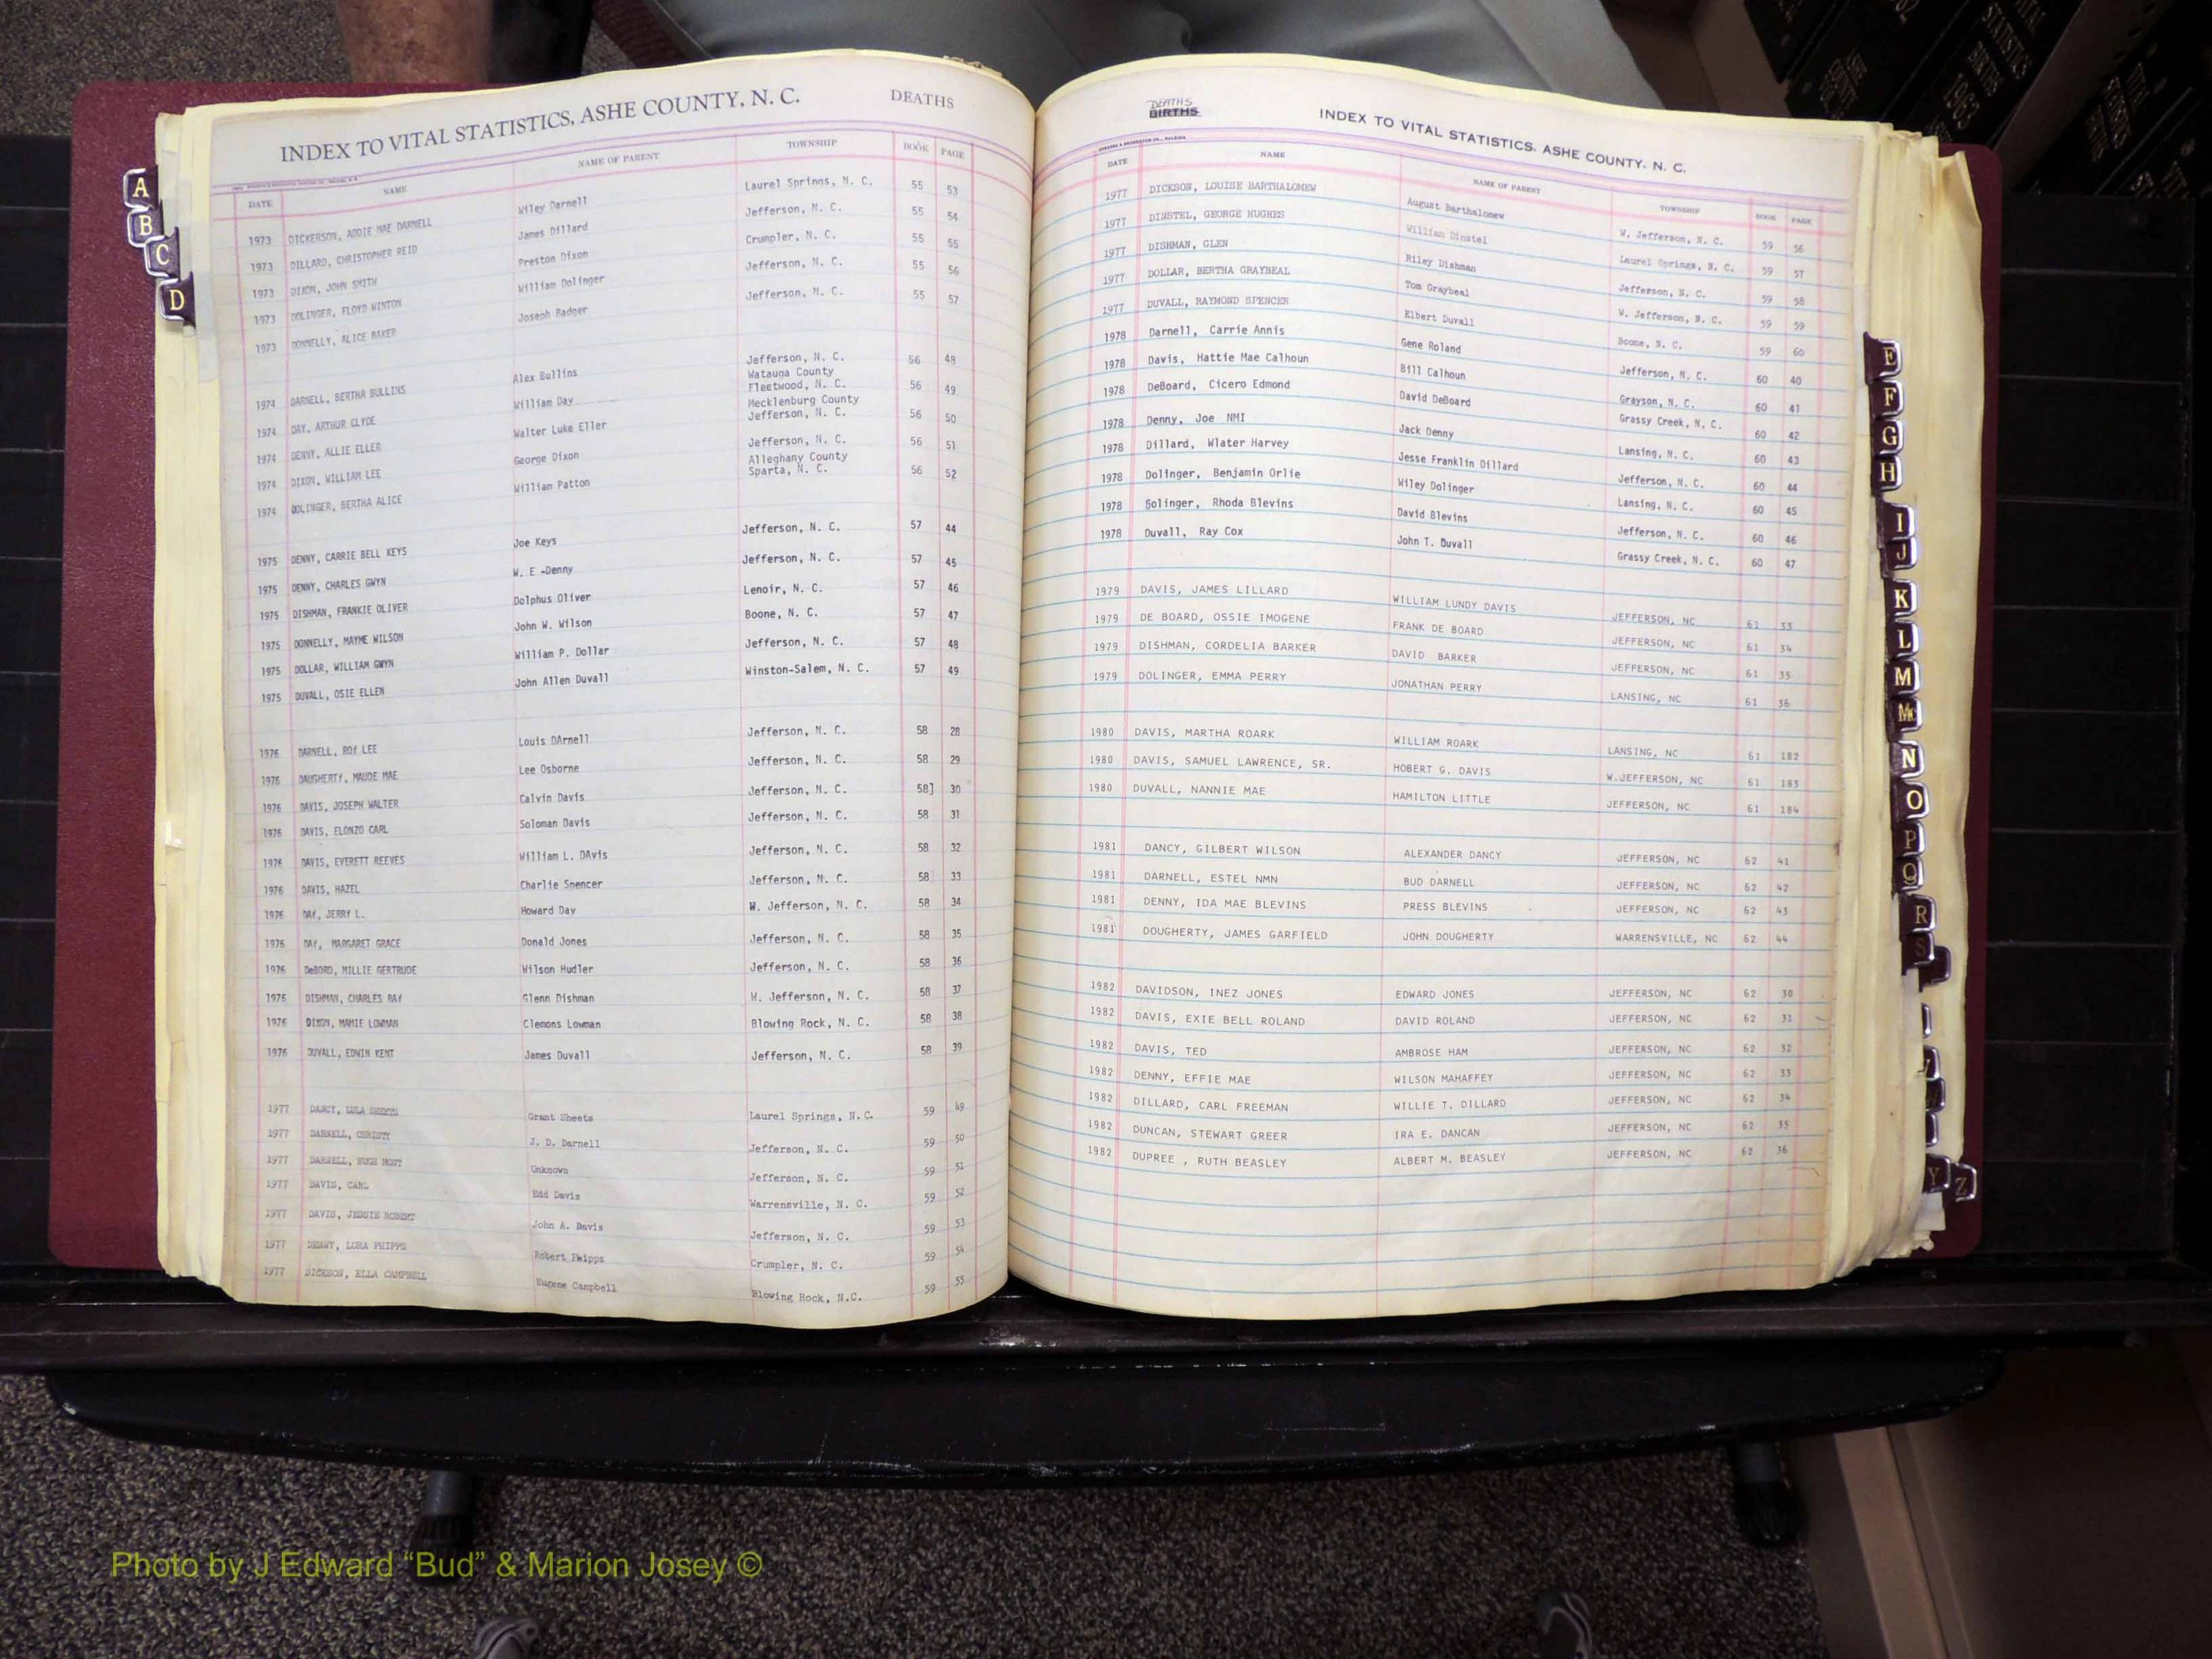 INDEX TO VITAL STATISTICS, ASHE COUNTY, N. C. DEATHS
DATE NAME NAME OF PARENT TOWNSHIP BOOK PAGE
1973 DICKERSON, ADDIE MAE DARNELL Wiley Darnell Laurel Springs, N. C. 55 53
1973 DILLARD, CHRISTOPHER REID James Dillard Jefferson, N. C. 55 54
1973 DIXON, JOHN SMITH Preston Dixon Crumpler, N. C. 55 55
1973 DOLINGER, FLOYD WINTON William Dolinger Jefferson, N. C. 55 56
1973 DONNELLY, ALICE BAKER Joseph Badger Jefferson, N. C. 55 57
1974 DARNELL, BERTHA BULLINS Alex Bullins Jefferson, N. C. 56 48
Watauga County
1974 DAY, ARTHUR CLYDE William Day Fleetwood, N. C. 56 49
Mecklenburg County
1974 DENNY, ALLIE ELLER Walter Luke Eller Jefferson, N. C. 56 50
1974 DIXON, WILLIAM LEE George Dixon Jefferson, N. C. 56 51
Alleghany County
1974 DOLINGER, BERTHA ALICE William Patton Sparta, N. C. 56 52
1975 DENNY, CARRIE BELL KEYS Joe Keys Jefferson, N. C. 57 44
1975 DENNY, CHARLES GWYN W. E -Denny Jefferson, N. C. 57 45
1975 DISHMAN, FRANKIE OLIVER Dolphus Oliver Lenoir, N. C. 57 46
1975 DONNELLY, MAYME WILSON John W. Wilson Boone, N. C. 57 47
1975 DOLLAR, WILLIAM GWYN William P. Dollar Jefferson, N. C. 57 48
1975 DUVALL, OSIE ELLEN John Allen Duvall Winston-Salem, N. C. 57 49
1976 DARNELL, ROY LEE Louis DArnell Jefferson, N. C. 58 28
1976 DAUGHERTY, MAUDE MAE Lee Osborne Jefferson, N. C. 58 29
1976 DAVIS, JOSEPH WALTER Calvin Davis Jefferson, N. C. 58] 30
1976 DAVIS, ELONZO CARL Soloman Davis Jefferson, N. C. 58 31
1976 DAVIS, EVERETT REEVES William L. DAvis Jefferson, N. C. 58 32
1976 DAVIS, HAZEL Charlie Spencer Jefferson, N. C. 58 33
1976 DAY, JERRY L. Howard Day W. Jefferson, N. C. 58 34
1976 DAY, MARGARET GRACE Donald Jones Jefferson, N. C. 58 35
1976 DeBORD, MILLIE GERTRUDE Wilson Hudler Jefferson, N. C. 58 36
1976 DISHMAN, CHARLES RAY Glenn Dishman W. Jefferson, N. C. 58 37
1976 DIXON, MAMIE LOWMAN Clemons Lowman Blowing Rock, N. C. 58 38
1976 DUVALL, EDWIN KENT James Duvall Jefferson, N. C. 58 39
1977 DANCY, LULA SHEETS Grant Sheets Laurel Springs, N.C. 59 49
1977 DARNELL, CHRISTY J. D. Darnell Jefferson, N. C. 59 50
1977 DARNELL, HUGH Unknown Jefferson, N. C. 59 51
1977 DAVIS, CARL Edd Davis Warrensville, N. C. 59 52
1977 DAVIS, JESSIE ROBERT John A. Davis Jefferson, N. C. 59 53
1977 DENNY, LURA PHIPPS Robert Phipps Crumpler, N. C. 59 54
1977 DICKSON, ELLA CAMPBELL Eugene Campbell Blowing Rock, N.C. 59 55
DEATHS
BIRTHS
INDEX TO VITAL STATISTICS, ASHE COUNTY, N. C.
DATE NAME NAME OF PARENT TOWNSHIP BOOK PAGE
1977 DICKSON, LOUISE BARTHALOMEW August Barthalomew W. Jefferson, N. C. 59 56
1977 DINSTEL, GEORGE HUGHES William Dinstel Laurel Springs, N. C. 59 57
1977 DISHMAN, GLEN Riley Dishman Jefferson, N. C. 59 58
1977 DOLLAR, BERTHA GRAYBEAL Tom Graybeal W. Jefferson, N. C. 59 59
1977 DUVALL, RAYMOND SPENCER Elbert Duvall Boone, N. C. 59 60
1978 Darnell, Carrie Annis Gene Roland Jefferson, N. C. 60 40
1978 Davis, Hattie Mae Calhoun Bill Calhoun Grayson, N. C. 60 41
1978 DeBoard, Cicero Edmond David DeBoard Grassy Creek, N. C. 60 42
1978 Denny, Joe NMI Jack Denny Lansing, N. C. 60 43
1978 Dillard, Wlater Harvey Jesse Franklin Dillard Jefferson, N. C. 60 44
1978 Dolinger, Benjamin Orlie Wiley Dolinger Lansing, N. C. 60 45
1978 Dolinger, Rhoda Blevins David Blevins Jefferson, N. C. 60 46
1978 Duvall, Ray Cox John T. Duvall Grassy Creek, N. C. 60 47
1979 DAVIS, JAMES LILLARD WILLIAM LUNDY DAVIS JEFFERSON, NC 61 33
1979 DE BOARD, OSSIE IMOGENE FRANK DE BOARD JEFFERSON, NC 61 34
1979 DISHMAN, CORDELIA BARKER DAVID BARKER JEFFERSON, NC 61 35
1979 DOLINGER, EMMA PERRY JONATHAN PERRY LANSING, NC 61 36
1980 DAVIS, MARTHA ROARK WILLIAM ROARK LANSING, NC 61 182
1980 DAVIS, SAMUEL LAWRENCE, SR. HOBERT G. DAVIS W.JEFFERSON, NC 61 183
1980 DUVALL, NANNIE MAE HAMILTON LITTLE JEFFERSON, NC 61 184
1981 DANCY, GILBERT WILSON ALEXANDER DANCY JEFFERSON, NC 62 41
1981 DARNELL, ESTEL NMN BUD DARNELL JEFFERSON, NC 62 42
1981 DENNY, IDA MAE BLEVINS PRESS BLEVINS JEFFERSON, NC 62 43
1981 DOUGHERTY, JAMES GARFIELD JOHN DOUGHERTY WARRENSVILLE, NC 62 44
1982 DAVIDSON, INEZ JONES EDWARD JONES JEFFERSON, NC 62 30
1982 DAVIS, EXIE BELL ROLAND DAVID ROLAND JEFFERSON, NC 62 31
1982 DAVIS, TED AMBROSE HAM JEFFERSON, NC 62 32
1982 DENNY, EFFIE MAE WILSON MAHAFFEY JEFFERSON, NC 62 33
1982 DILLARD, CARL FREEMAN WILLIE T. DILLARD JEFFERSON, NC 62 34
1982 DUNCAN, STEWART GREER IRA E. DANCAN JEFFERSON, NC 62 35
1982 DUPREE , RUTH BEASLEY ALBERT M. BEASLEY JEFFERSON, NC 62 36
A
B
C
D
E
F
G
H
I
J
K
L
M
Mc
N
O
P
Q
R
S
Y
Z
VITAL STATISTICS
BIRTHS
1963
Photo by J Edward “Bud” & Marion Josey ©